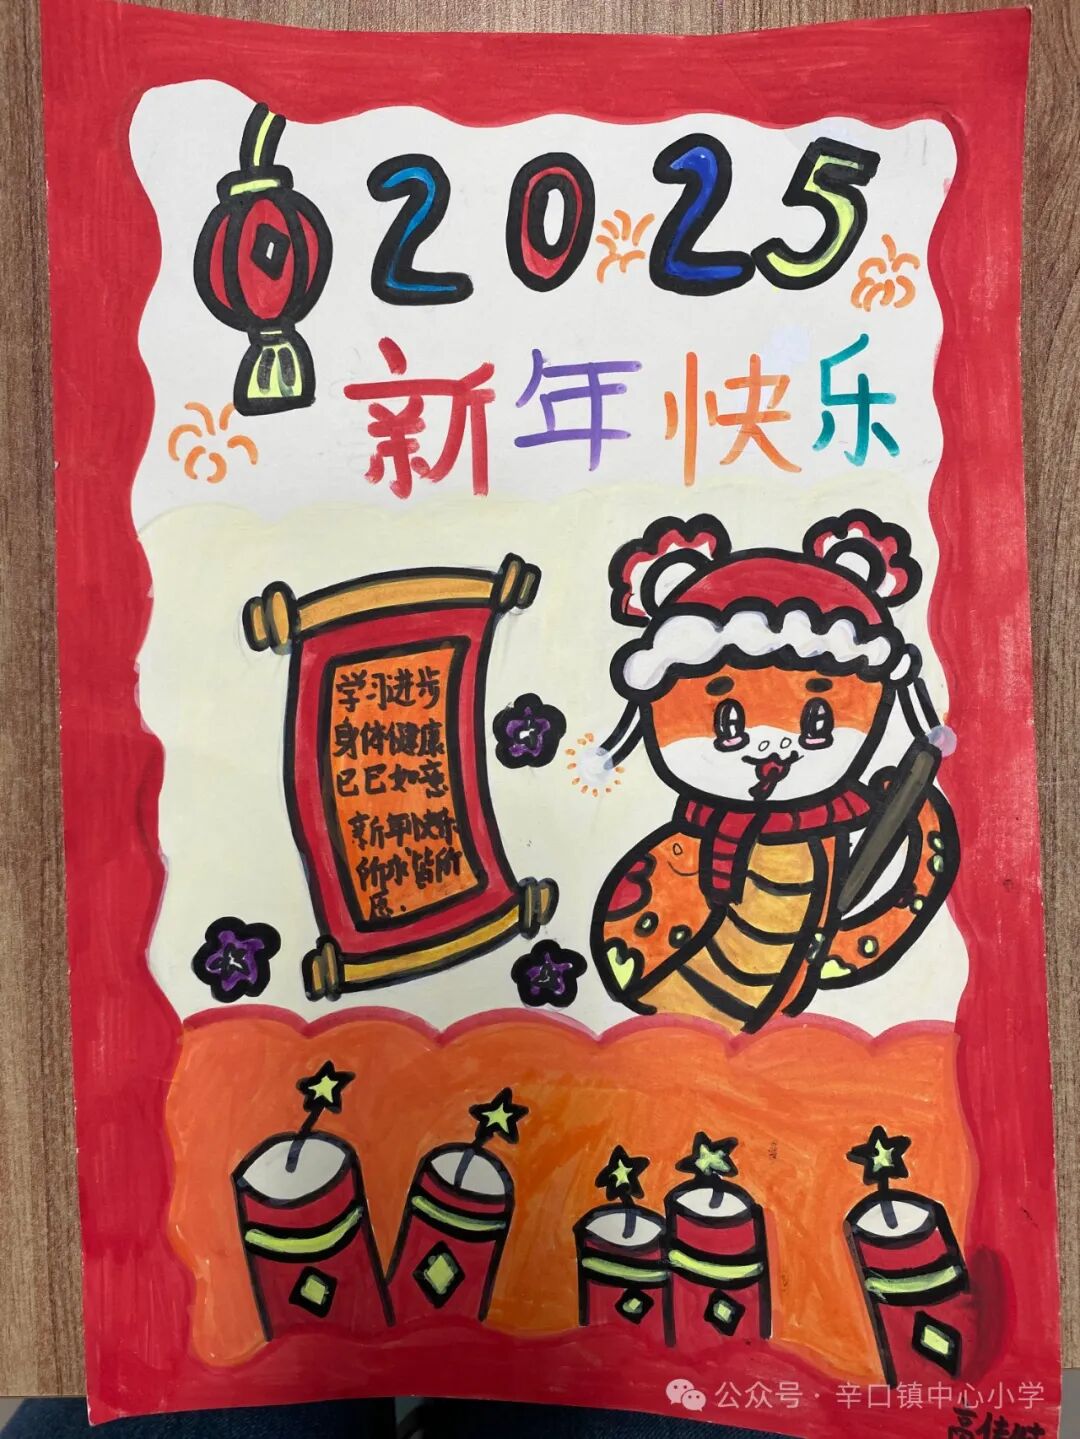 2025
新年快乐
学习进步
身体健康
巳巳如意
新年快乐
所求皆所
愿.
公众号·辛口镇中心小学
高佳